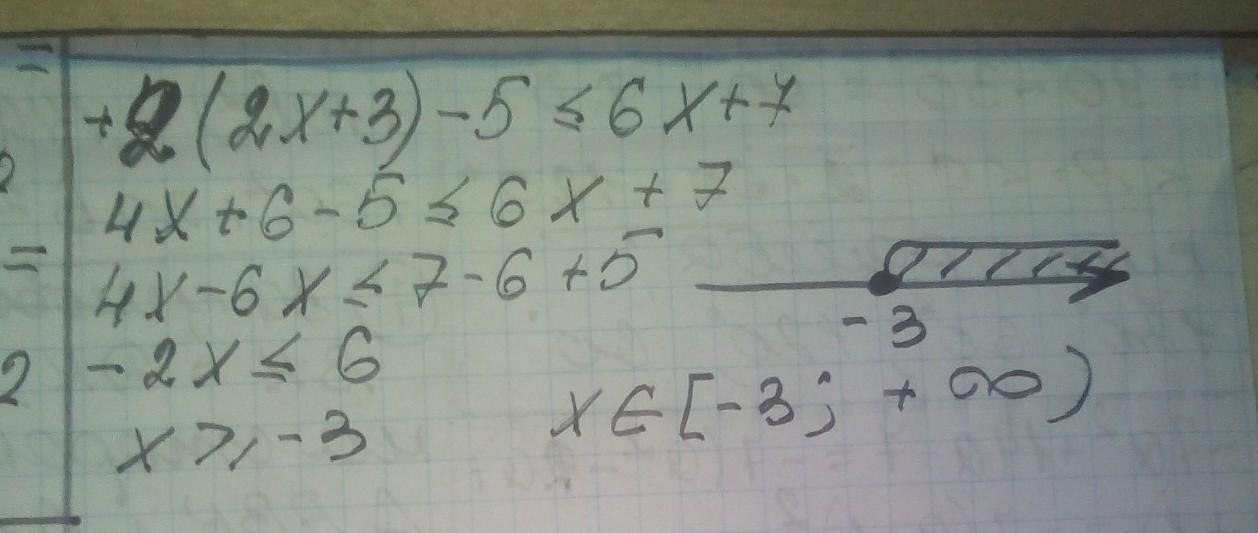 =
+2(2x+3)-5≤6x+7
4x+6-5≤6x+7
=
4x-6x≤7-6+5
-3
2
-2x≤6
x≥-3
x∈[-3; +∞)